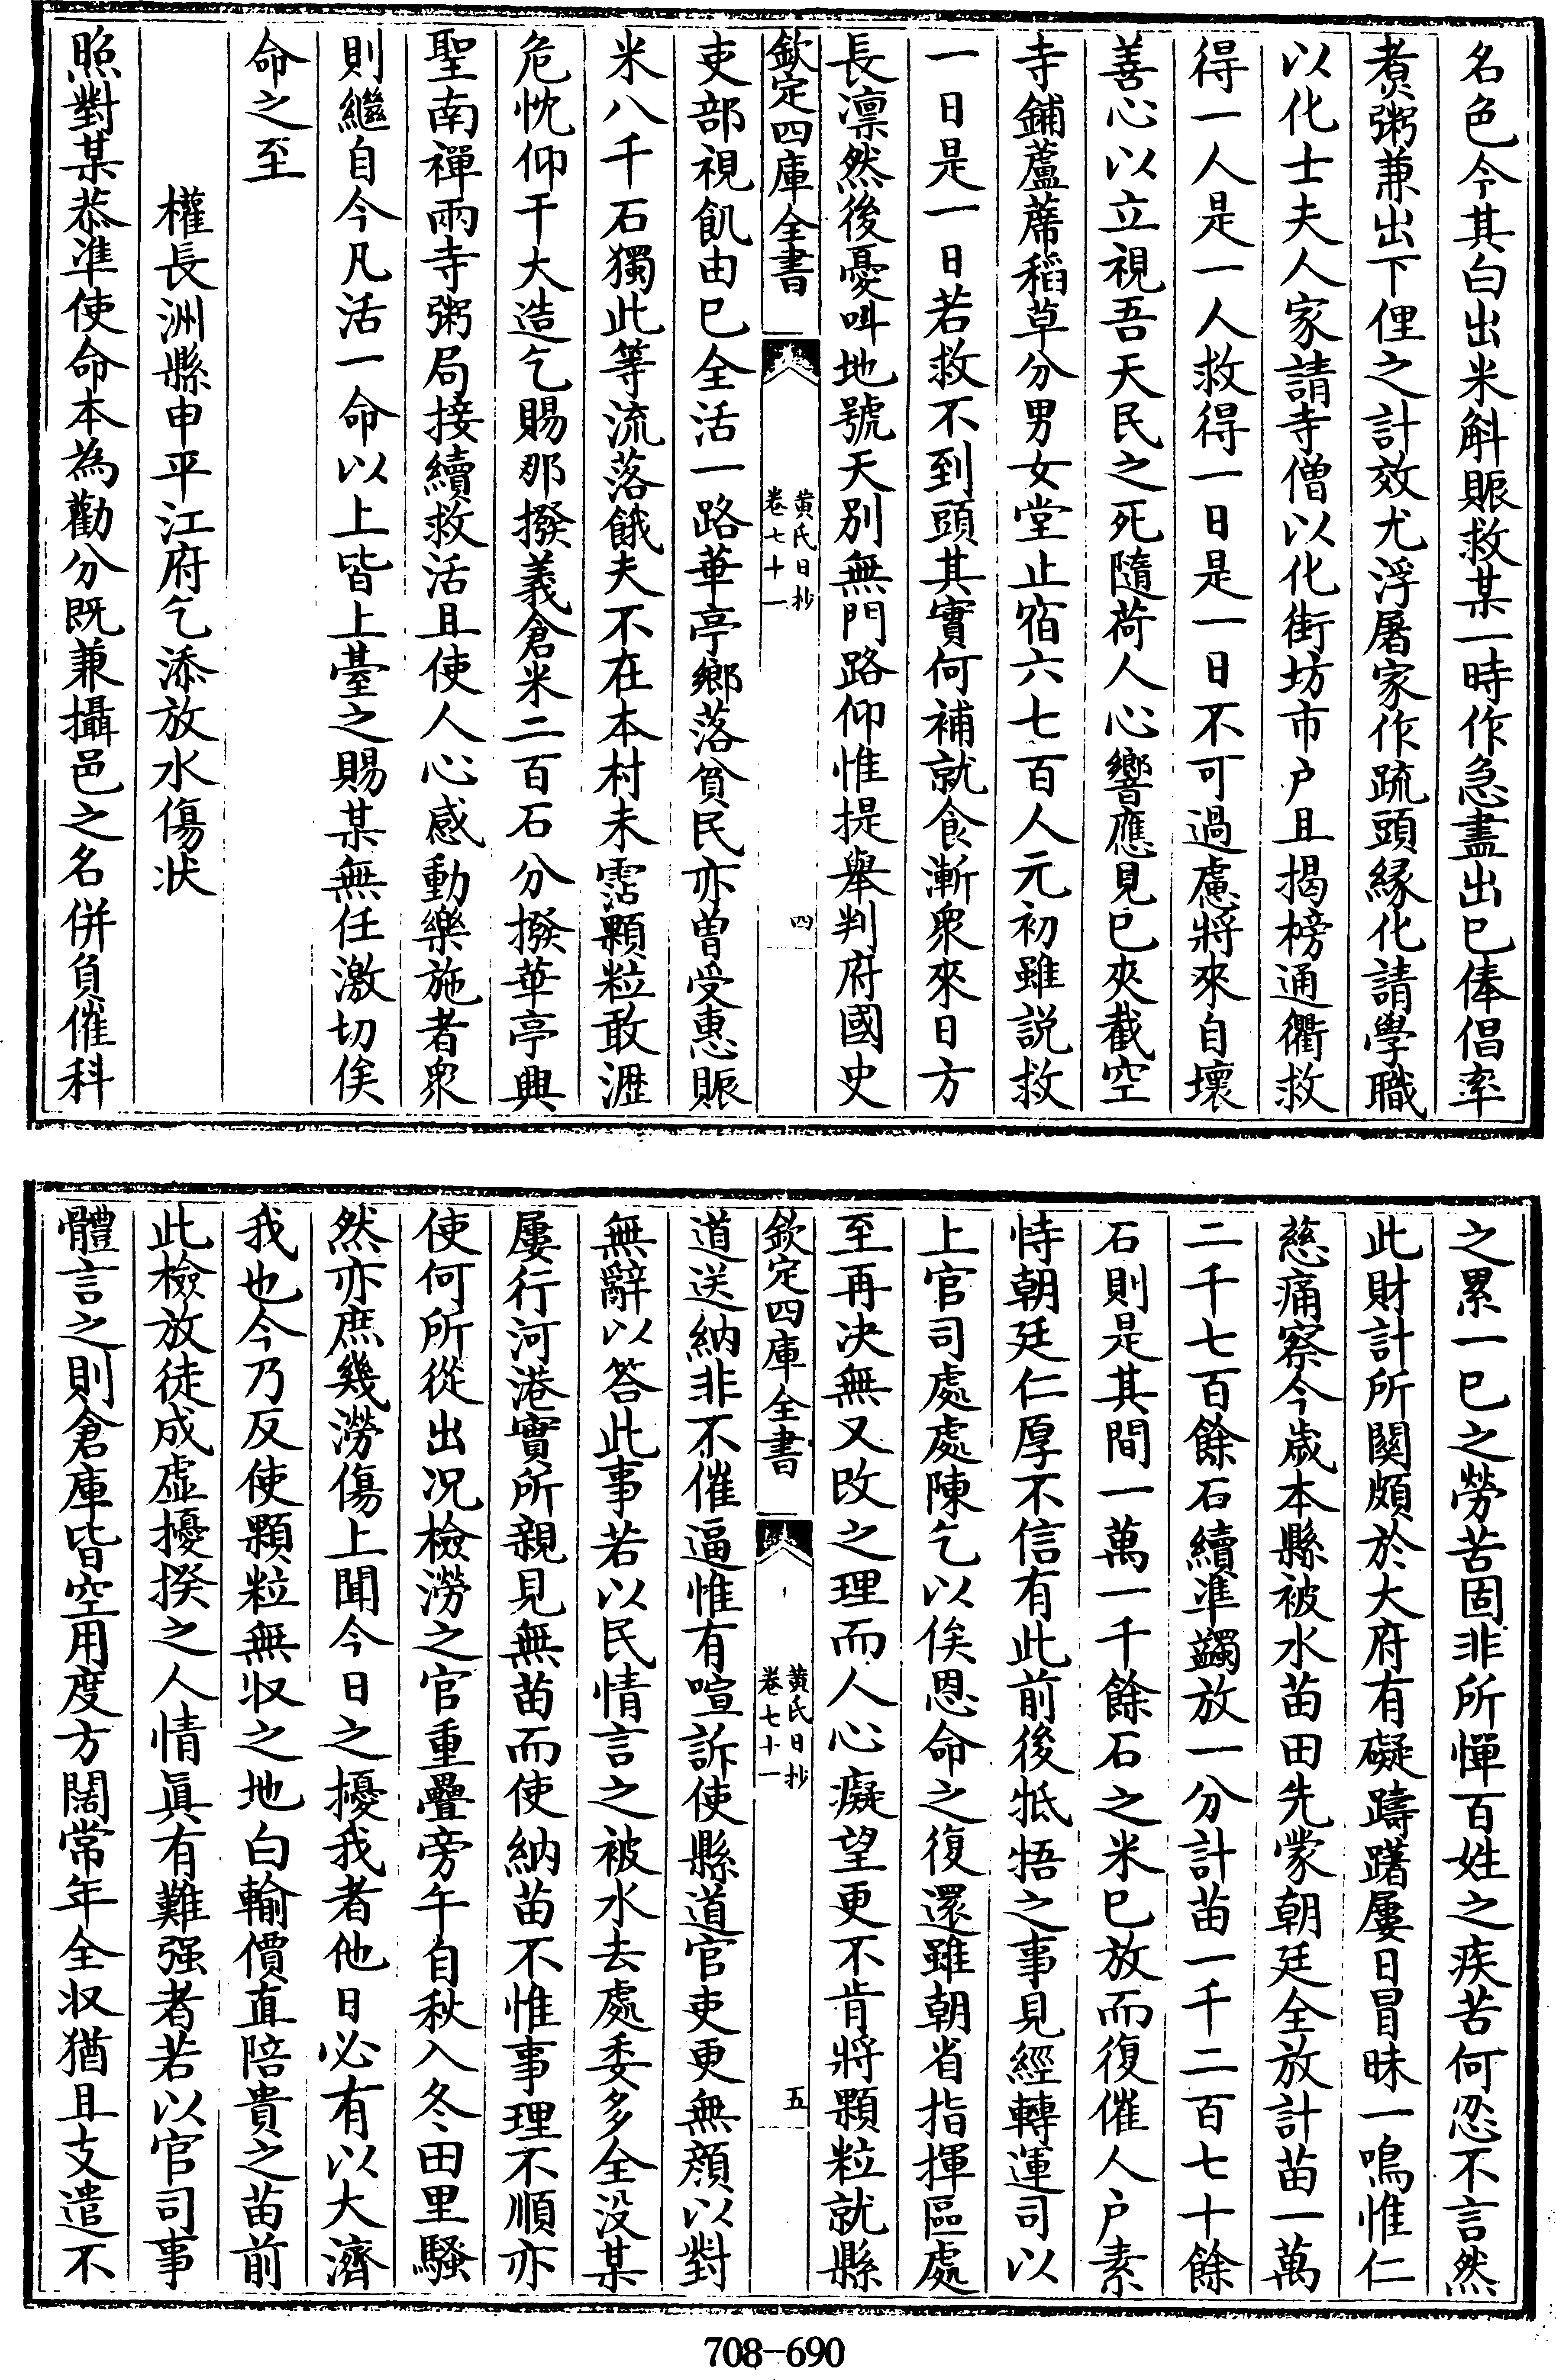 名色今其白出米斛賑救某一時作急盡出已俸倡率
煑粥兼出下俚之計效尤浮屠家作疏頭緣化請學職
以化士夫人家請寺僧以化街坊市户且揭榜通衢救
得一人是一人救得一日是一日不可過慮將來自壞
善心以立視吾天民之死隨荷人心響應見已夾截空
寺鋪蘆蓆稻草分男女堂止宿六七百人元初雖説救
一日是一日若救不到頭其實何補就食漸衆來日方
長凛然後憂呌地號天别無門路仰惟提舉判府國史
欽定四庫全書
黄氏日抄
卷七十一
四
吏部視飢由已全活一路華亭鄉落貧民亦曽受惠賑
米八千石獨此等流落餓夫不在本村未霑顆粒敢瀝
危忱仰干大造乞賜那撥義倉米二百石分撥華亭興
聖南禪兩寺粥局接續救活且使人心感動樂施者衆
則繼自今凡活一命以上皆上臺之賜某無任激切俟
命之至
權長洲縣申平江府乞添放水傷状
照對某恭準使命本為勸分既兼攝邑之名併負催科
之累一已之勞苦固非所憚百姓之疾苦何忍不言然
此財計所闗頗於大府有礙躊躇屢日冒昧一鳴惟仁
慈痛察今歳本縣被水苗田先蒙朝廷全放計苗一萬
二千七百餘石續準蠲放一分計苗一千二百七十餘
石則是其間一萬一千餘石之米已放而復催人户素
恃朝廷仁厚不信有此前後牴牾之事見經轉運司以
上官司處處陳乞以俟恩命之復還雖朝省指揮區處
至再决無又改之理而人心癡望更不肯將顆粒就縣
欽定四庫全書
黄氏日抄
卷七十一
五
道送納非不催逼惟有喧訴使縣道官吏更無顔以對
無辭以答此事若以民情言之被水去處委多全没某
屢行河港實所親見無苗而使納苗不惟事理不順亦
使何所從出况檢澇之官重疊旁午自秋入冬田里騷
然亦庶幾澇傷上聞今日之擾我者他日必有以大濟
我也今乃反使顆粒無収之地白輸價直陪貴之苗前
此檢放徒成虚擾揆之人情眞有難强者若以官司事
體言之則倉庫皆空用度方闊常年全収猶且支遣不
708-690